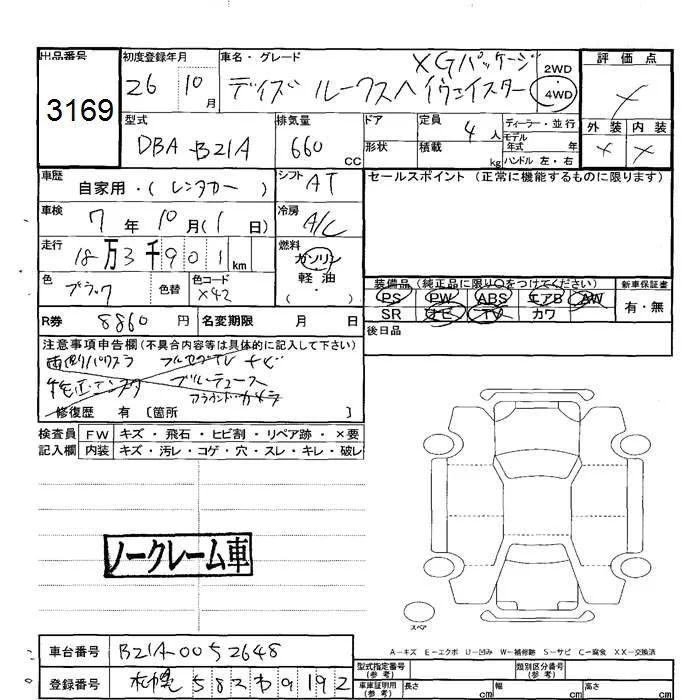 出品番号
3169
初度登録年月
26 10月
車名・グレード
XGパッケージ
デイズ ルークスハイウェイスター
2WD
4WD
評価点
X
外装 内装
X X
型式
DBA-B21A
排気量
660 CC
ドア
形状
定員 4人
積載 kg
ディーラー・並行
モデル年式 年
ハンドル 左・右
車歴
自家用・(レンタカー)
シフト AT
セールスポイント (正常に機能するものに限ります)
車検
7年10月(1日)
冷房 A/C
走行
18万3千901km
燃料
ガソリン
軽油
(・・)
色 ブラック 色替
色コード X42
装備品(純正品に限り○をつけてください)
新車保証書
PS PW ABS エアB AW
有・無
SR ナビ TV カワ
R券 8860円 名変期限 月 日
後日品
注意事項申告欄(不具合内容等は具体的に記入して下さい)
両側パワスラ フルセグTV ナビ
ブルートゥース
アラウンドカメラ
修復歴 有〔箇所 〕
検査員記入欄
FW キズ・飛石・ヒビ割・リペア跡・×要
内装 キズ・汚レ・コゲ・穴・スレ・キレ・破レ
ノークレーム車
スペア
A-キズ E-エクボ U-凹み W-補修跡 S-サビ C-腐食 XX-交換済
車台番号 B21A-0052648
登録番号 札幌 582 わ 9192
型式指定番号(参考)
類別区分番号(参考)
車庫証明用(参考) 長さ cm 幅 cm 高さ cm